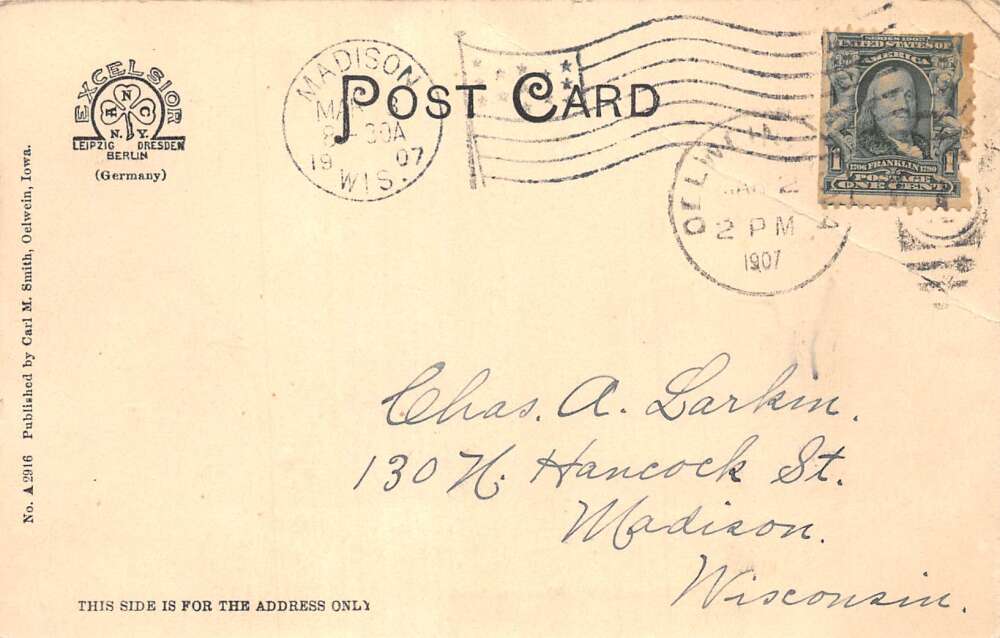 POST CARD
EXCELSIOR
A N C
N. Y.
LEIPZIG DRESDEN
BERLIN
(Germany)
MADISON
8-30A
19 07
WIS.
2 PM
1907
SERIES 1902
UNITED STATES OF
AMERICA
1 1706 FRANKLIN 1790 1
POSTAGE
ONE CENT
No. A 2916 Published by Carl M. Smith, Oelwein, Iowa.
Chas. A. Larkin.
130 N. Hancock St.
Madison.
Wisconsin.
THIS SIDE IS FOR THE ADDRESS ONLY